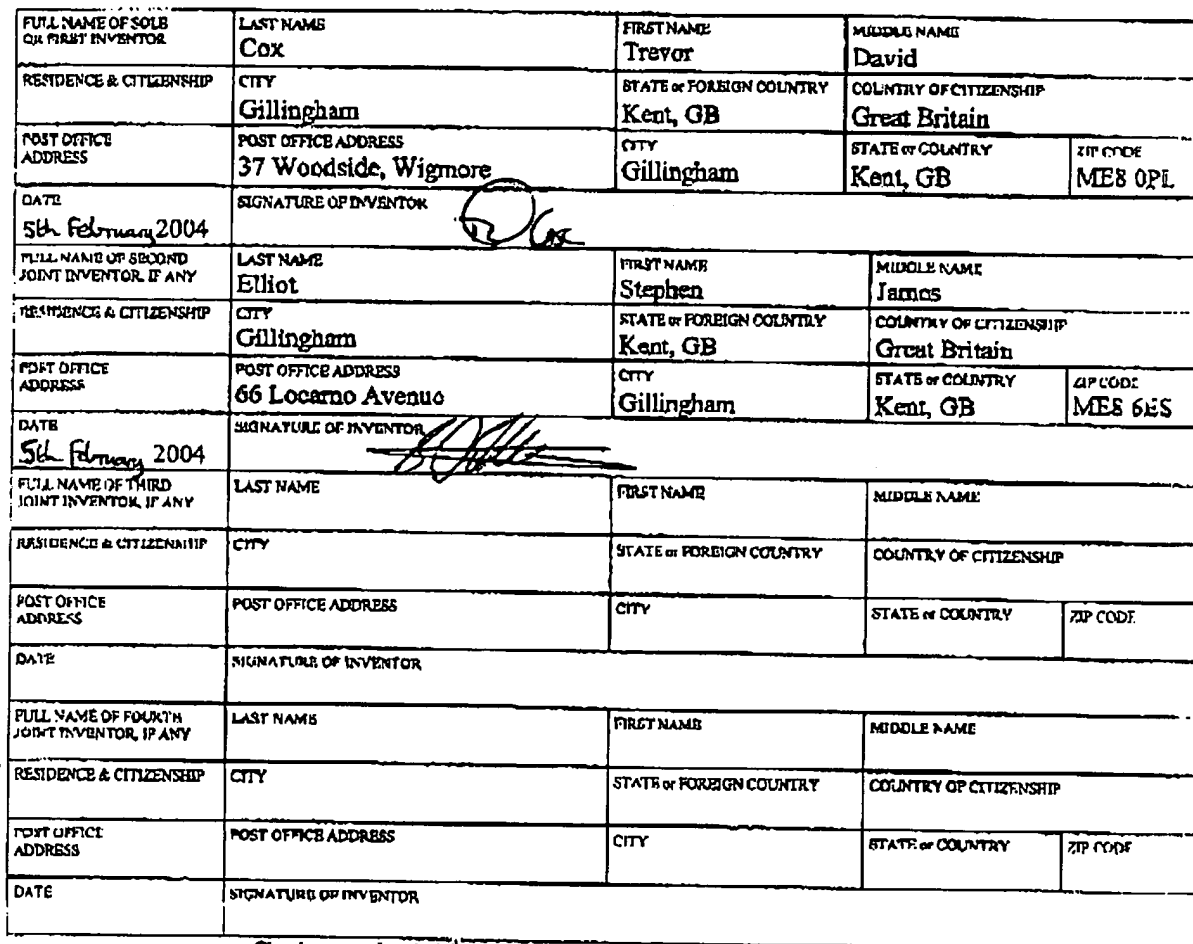 FULL NAME OF SOLE OR FIRST INVENTOR
LAST NAME
Cox
FIRST NAME
Trevor
MIDDLE NAME
David
RESIDENCE & CITIZENSHIP
CITY
Gillingham
STATE or FOREIGN COUNTRY
Kent, GB
COUNTRY OF CITIZENSHIP
Great Britain
POST OFFICE ADDRESS
POST OFFICE ADDRESS
37 Woodside, Wigmore
CITY
Gillingham
STATE or COUNTRY
Kent, GB
ZIP CODE
ME8 0PL
DATE
5th February 2004
SIGNATURE OF INVENTOR
FULL NAME OF SECOND JOINT INVENTOR, IF ANY
LAST NAME
Elliot
FIRST NAME
Stephen
MIDDLE NAME
James
RESIDENCE & CITIZENSHIP
CITY
Gillingham
STATE or FOREIGN COUNTRY
Kent, GB
COUNTRY OF CITIZENSHIP
Great Britain
POST OFFICE ADDRESS
POST OFFICE ADDRESS
66 Locarno Avenue
CITY
Gillingham
STATE or COUNTRY
Kent, GB
ZIP CODE
ME8 6ES
DATE
5th February 2004
SIGNATURE OF INVENTOR
FULL NAME OF THIRD JOINT INVENTOR, IF ANY
LAST NAME
FIRST NAME
MIDDLE NAME
RESIDENCE & CITIZENSHIP
CITY
STATE or FOREIGN COUNTRY
COUNTRY OF CITIZENSHIP
POST OFFICE ADDRESS
POST OFFICE ADDRESS
CITY
STATE or COUNTRY
ZIP CODE
DATE
SIGNATURE OF INVENTOR
FULL NAME OF FOURTH JOINT INVENTOR, IF ANY
LAST NAME
FIRST NAME
MIDDLE NAME
RESIDENCE & CITIZENSHIP
CITY
STATE or FOREIGN COUNTRY
COUNTRY OF CITIZENSHIP
POST OFFICE ADDRESS
POST OFFICE ADDRESS
CITY
STATE or COUNTRY
ZIP CODE
DATE
SIGNATURE OF INVENTOR